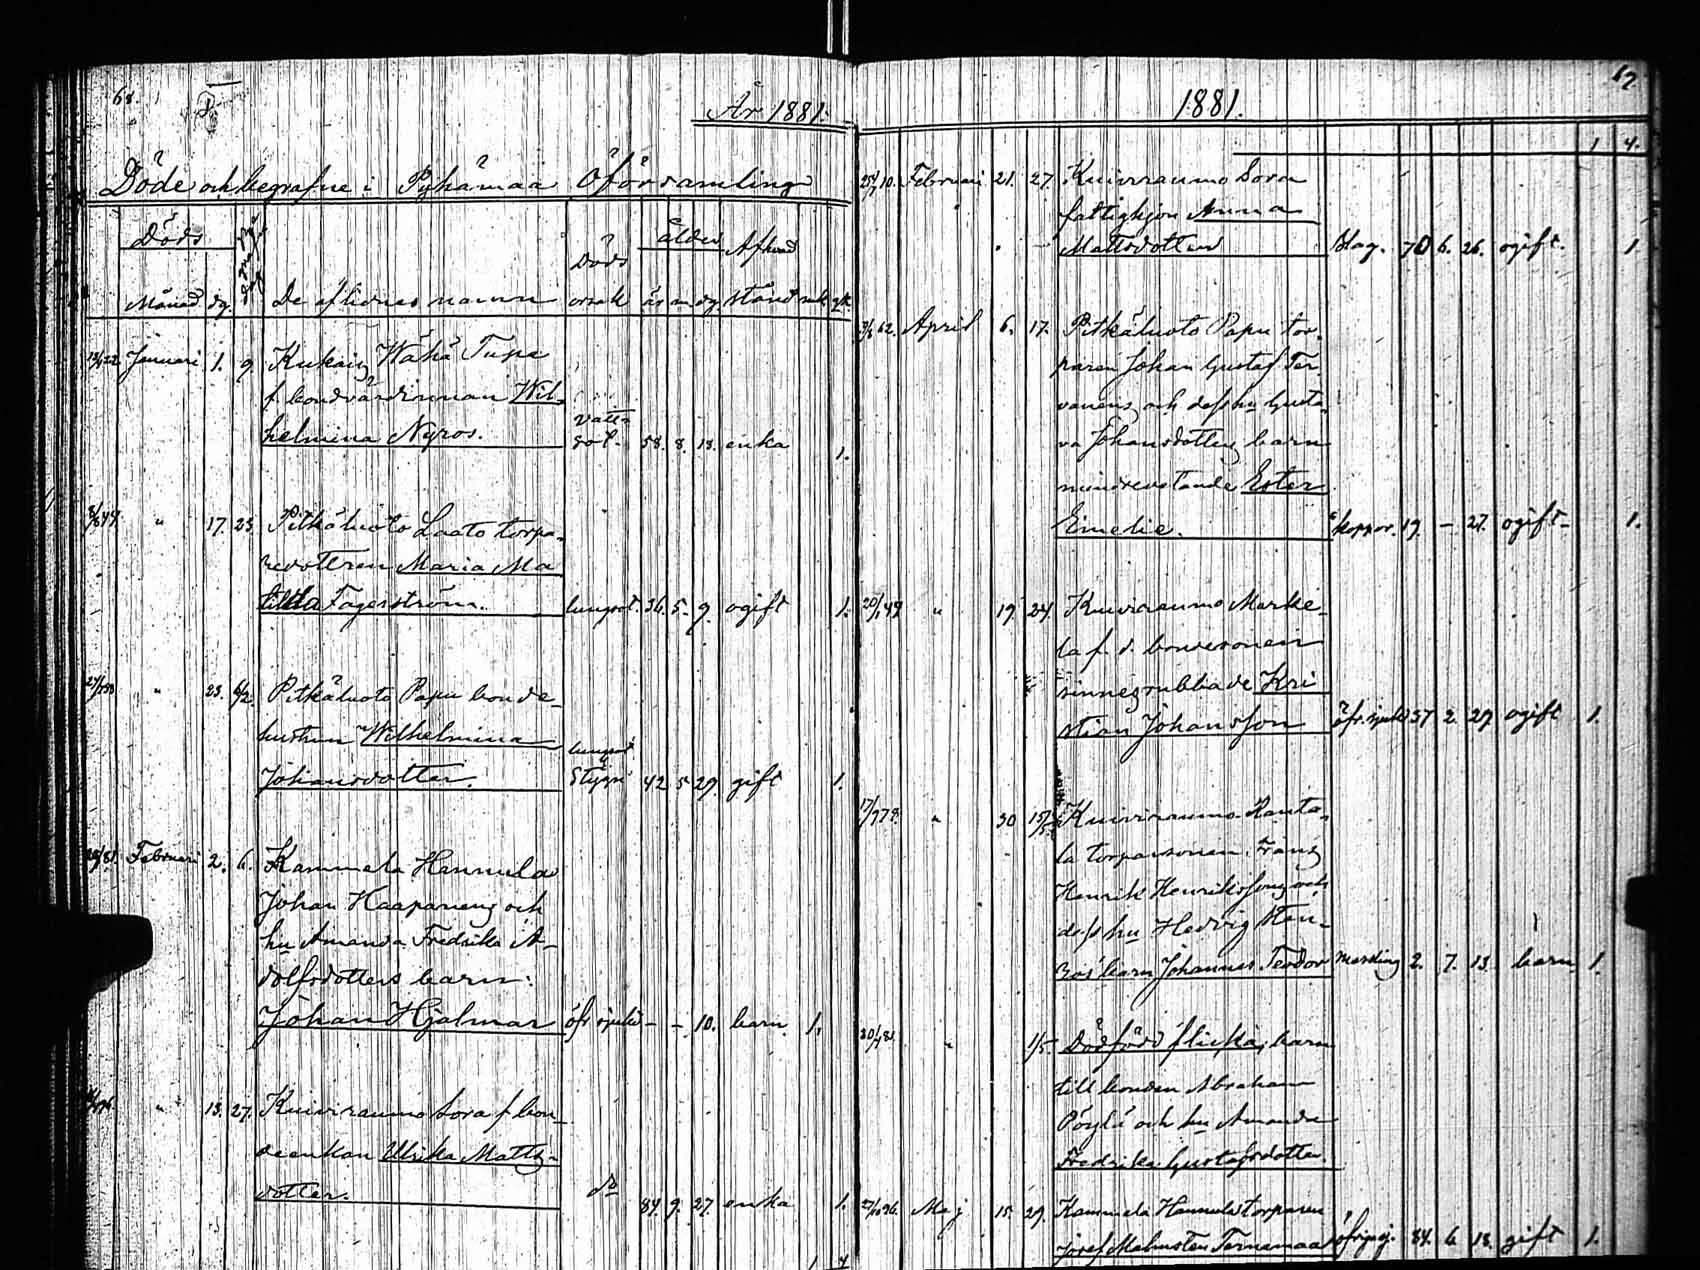 68.
År 1881.
Döde och begrafne i Pyhämaa Öförsamling
Döds
Månad dg.
De aflidnes namn
Döds orsak
ålder
år m. dg.
Afkned
stånd mk. qk.
13/4 22 Januari 1. 9. Kukaig Wähä Tupa
f. bondvärdinnan Wil-
helmina Nyroos. vatt-
sot. 58. 8. 18. enka 1.
8/8 44 " 17. 23. Pitkäluoto Laato torpa-
redottren Maria Ma
tilda Fagerström. lungsot. 36. 5. 9. ogift 1.
" 23. 6/2. Pitkäluoto Papu bonde-
hustrun Wilhelmina
Johansdotter. lungsot
Stygn 42. 5. 29. gift 1.
Februari 2. 6. Kammela Hannula
Johan Haapanens och
hu Amanda Fredrika A-
dolfsdotters barn:
Johan Hjalmar öfr sjukd - - 10. barn 1.
" 13. 27. Kuivraumo Sora f. bon-
deenkan Ulrika Matts-
dotter. do 84. 9. 27. enka 1.
1 4
67
1881.
1 4.
25/7 10. Februari 21. 27. Kuivraumo Sora
fattighjon Anna
Mattsdotter slag. 70 6. 26. ogift. 1.
62. April 6. 17. Pitkäluoto Papu tor-
paren Johan Gustaf Ter-
vanens och dess hu Gusta-
va Johansdotters barn
mindreåtande Ester
Emelie. koppor. 19. - 27. ogift- 1.
20/1 44 " 19. 24. Kuivraumo Marke-
la f. d. bondesonen
sinnesrubbade Kri
stian Johansson öfr. sjukd 37 2. 29. ogift 1.
17/9 78. " 30 15/5. Kuivraumo Ranta-
la torparsonen Frans
Henrik Henrikssons och
dess hu Hedvig Sten-
roos' barn Johannes Teodor messling 2. 7. 13. barn 1.
30/4 81. " 1/5. Dödfödd flicka, barn
till bonden Abraham
Pöylä och hu Amanda
Fredrika Gustafsdotter.
27/10 96. Maj 15. 29. Kammela Hannula torparen
Josef Malmsten Ternamaa öfr sj. 84. 6. 18. gift 1.